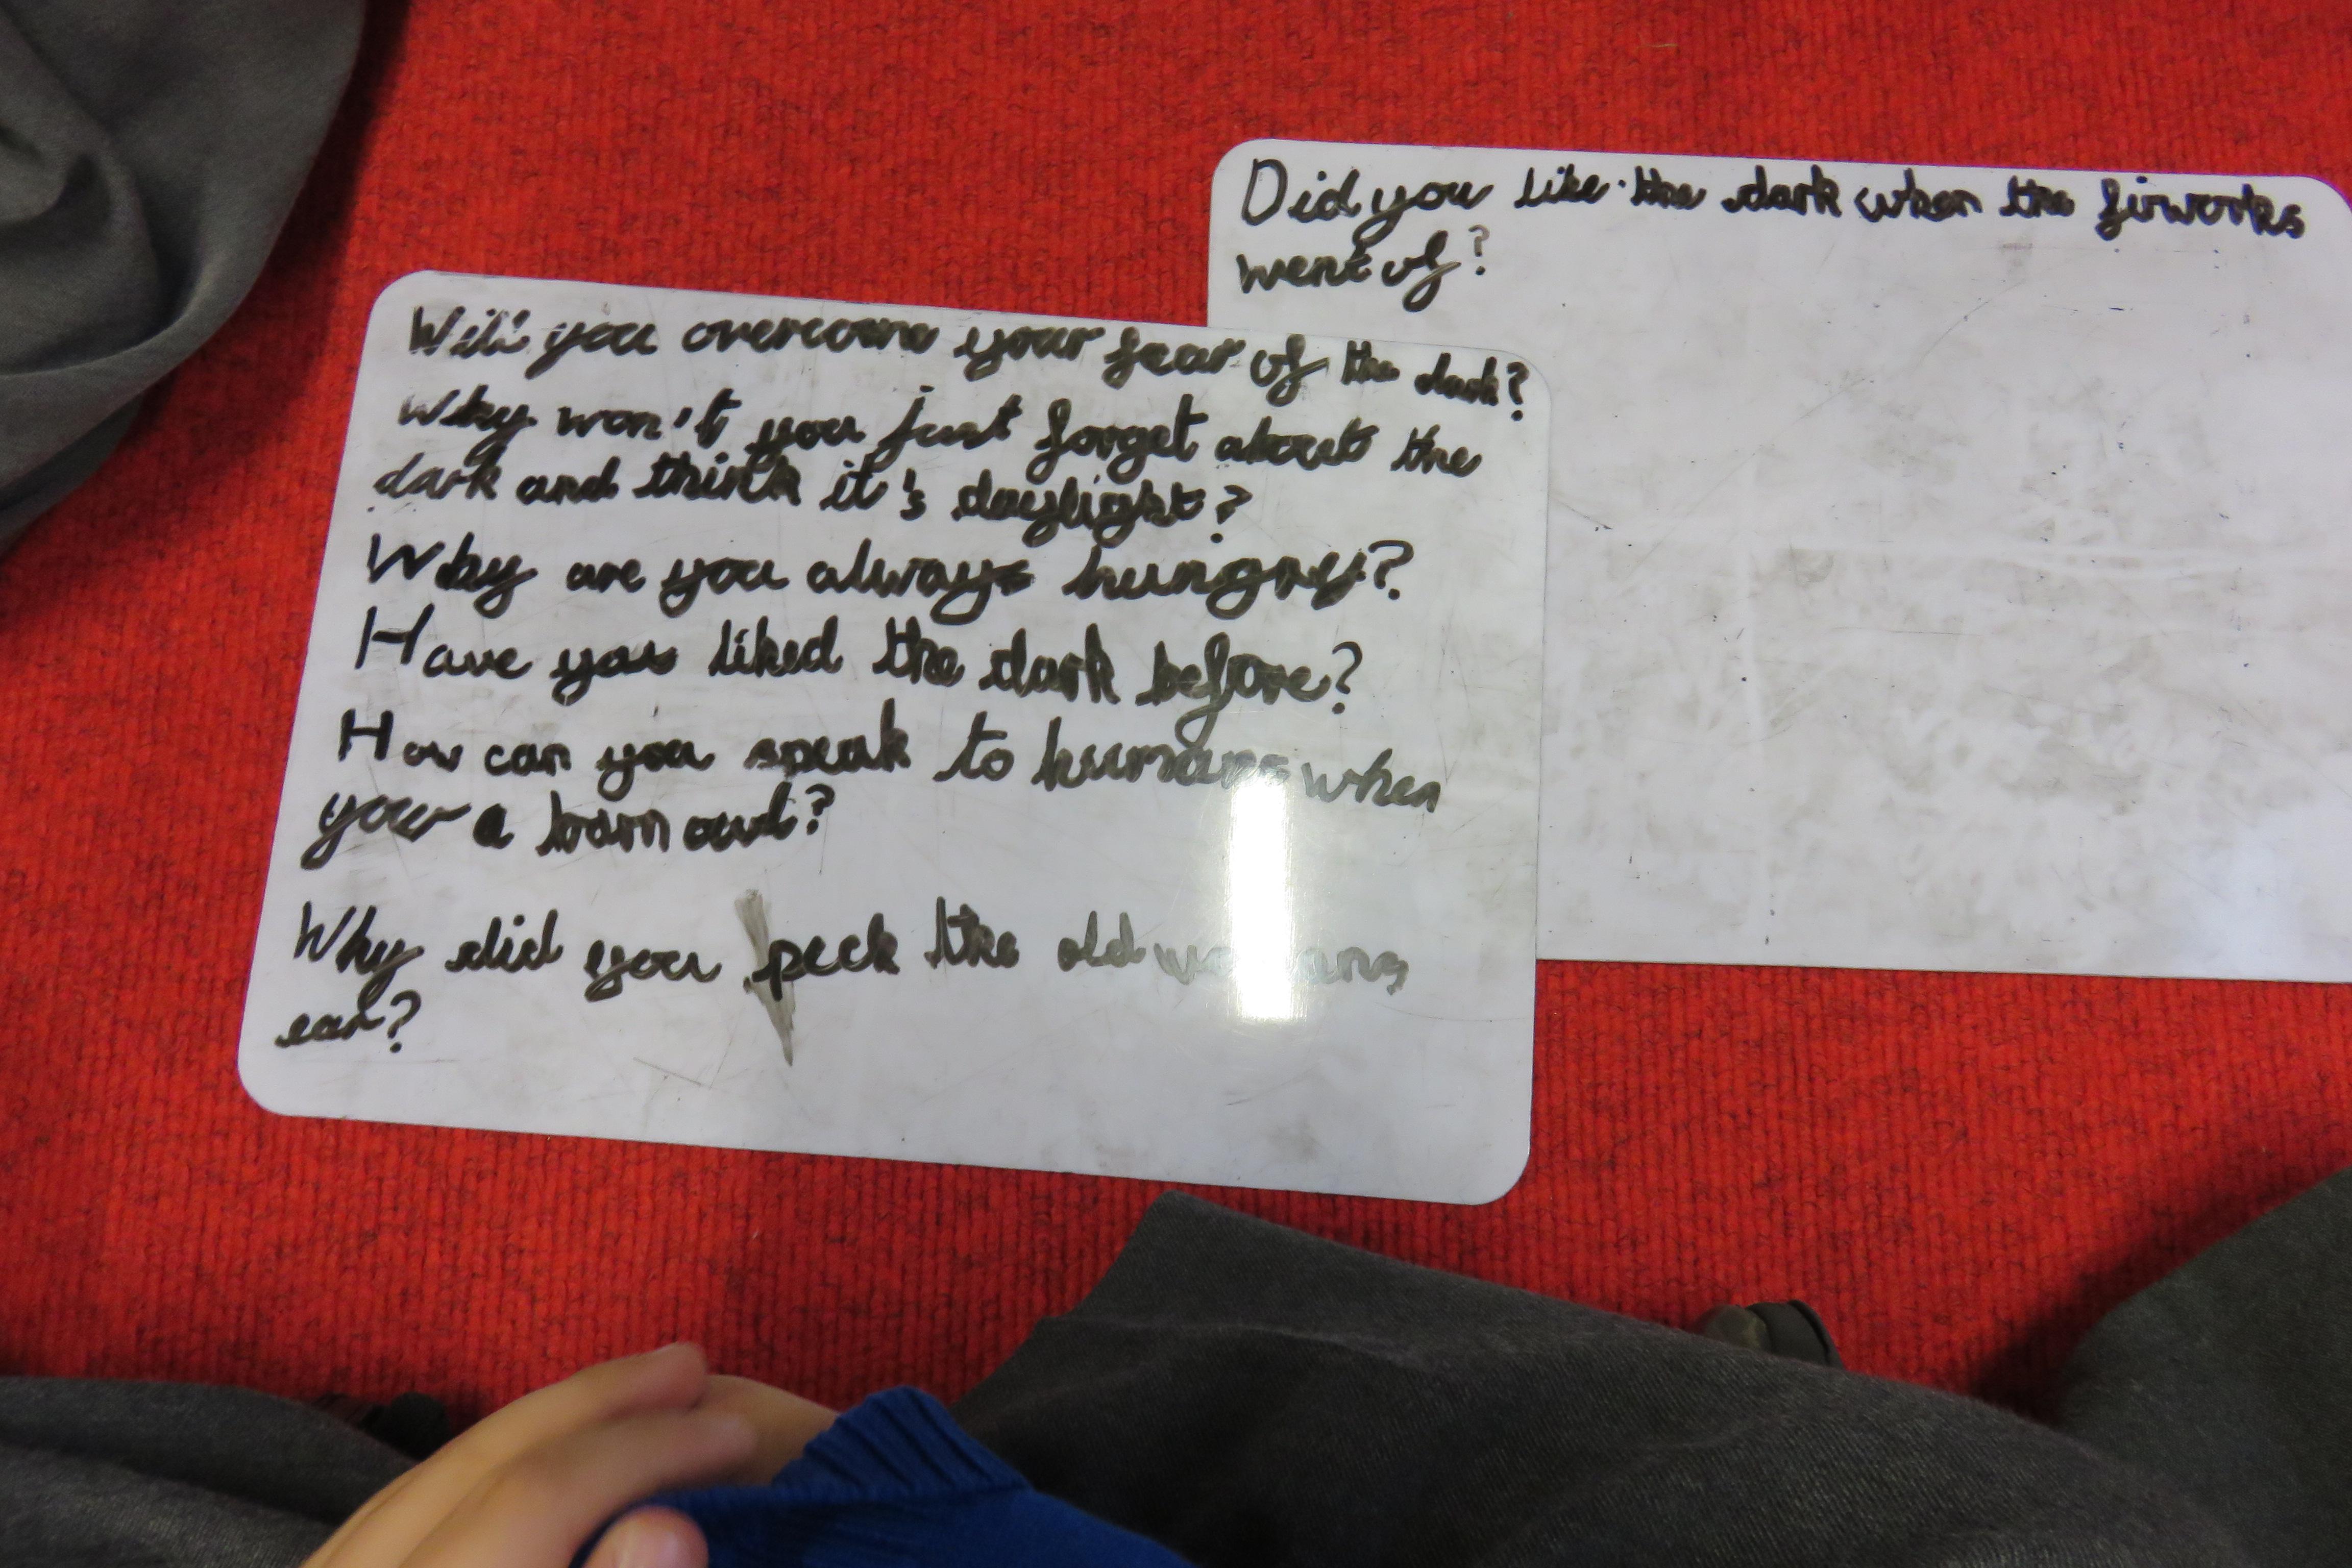 Will you overcome your fear of the dark?
Why won't you just forget about the
dark and think it's daylight?
Why are you always hungry?
Have you liked the dark before?
How can you speak to humans when
your a barn owl?
Why did you peck the old womans
ear?
Did you like the dark when the firworks
went of?